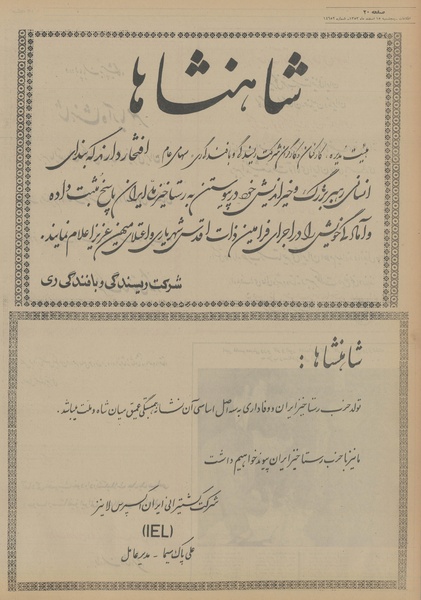 صفحه ۲۰
شاهنشاها
هیئت مدیره، کارکنان و کارگران شرکت ریسندگی و بافندگی ری، سهامی عام افتخار دارند که بندای
انسانی رهبر بزرگ و خیراندیش خود در پیوستن به رستاخیز ملی ایران پاسخ مثبت داده
و آمادگی خویش را در اجرای فرامین ذات اقدس شهریاری و اعتلای میهن عزیز اعلام نمایند.
شرکت ریسندگی و بافندگی ری
شاهنشاها :
تولد حزب رستاخیز ایران و وفاداری به سه اصل اساسی آن نشانه همبستگی عمیق میان شاه و ملت میباشد.
ما نیز با حزب رستاخیز ایران پیوند خواهیم داشت
شرکت کشتیرانی ایران اکسپرس لاینز
(IEL)
علی پاک سیما - مدیر عامل